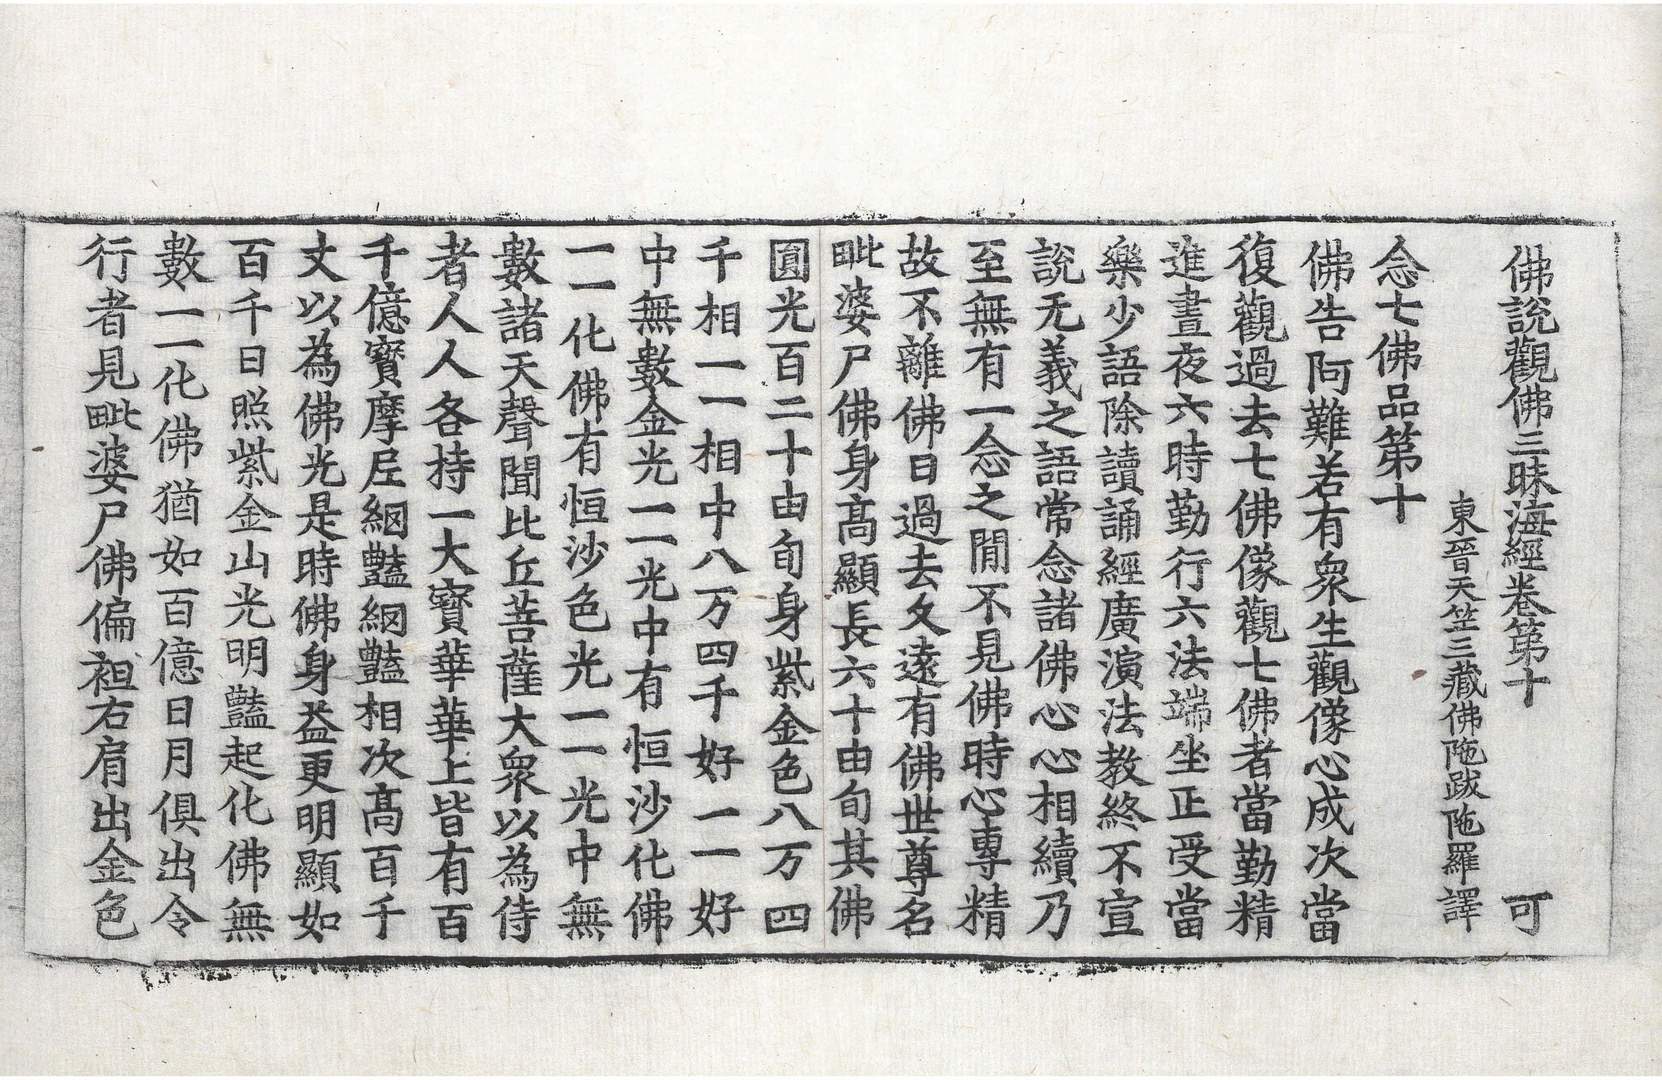 佛說觀佛三昧海經卷第十　可
東晉天竺三藏佛陁跋陁羅譯
念七佛品第十
佛告阿難若有衆生觀像心成次當
復觀過去七佛像觀七佛者當勤精
進晝夜六時勤行六法端坐正受當
樂少語除讀誦經廣演法教終不宣
說无義之語常念諸佛心心相續乃
至無有一念之閒不見佛時心專精
故不離佛日過去久遠有佛世尊名
毗婆尸佛身高顯長六十由旬其佛
圎光百二十由旬身紫金色八万四
千相一一相中八万四千好一一好
中無數金光一一光中有恒沙化佛
一一化佛有恒沙色光一一光中無
數諸天聲聞比丘菩薩大衆以為侍
者人人各持一大寶華華上皆有百
千億寶摩尼網豔網豔相次高百千
丈以為佛光是時佛身益更明顯如
百千日照紫金山光明豔起化佛無
數一一化佛猶如百億日月俱出令
行者見毗婆尸佛偏袒右肩出金色